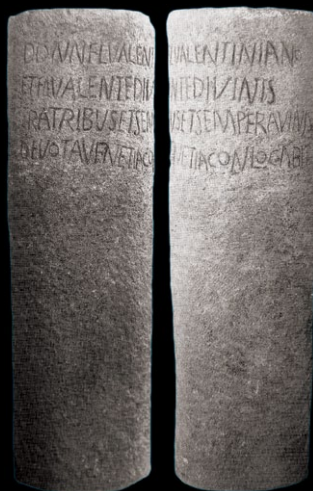 DDNNFLVALENT
ETFLVALENTEDIV
RATRIBVSETSEM
DEVOTAVENETIACO
VALENTINIANO
NTEDIVINIS
VSETSEMPERAVINIS
NETIACONLOCABI